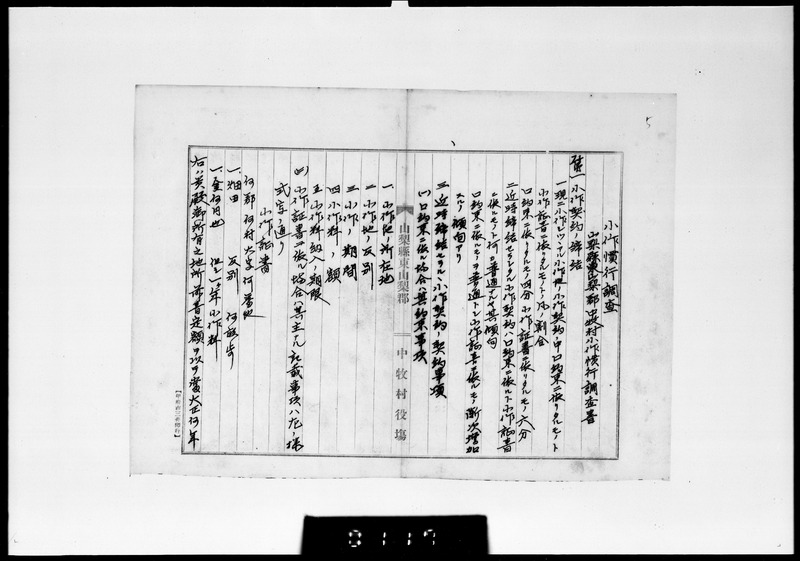 小作慣行調査
山梨縣東山梨郡中牧村小作慣行調査書
第一 小作契約ノ締結
一 現ニ小作セツヽアル小作地ノ小作契約中口約束ニ依リタルモノト
小作証書ニ依リタルモノトノ凡ノ割合
口約束ニ依リタルモノ四分 小作証書ニ依リタルモノ六分
二 近時締結セラルヽ小作契約ハ口約束ニ依ルト小作証書
ニ依ルモノト何レカ普通ナルヤ其傾向
口約束ニ依ルモノヲ普通トシ小作証書ニ依ルモノ漸次増加
スルノ傾向アリ
三 近時締結セラルヽ小作契約ノ契約事項
(一)口約束ニ依ル場合ハ其約束事項
山梨縣東山梨郡 中牧村役場
一 小作地所在地
二 小作地ノ反別
三 小作ノ期間
四 小作料ノ額
五 小作料納入ノ期限
(二)小作証書ニ依ル場合ハ其主ナル記載事項ハ左ノ様
式写ノ通リ
小作証書
何郡何村大字何番地
一、畑田 反別 何畝歩
一、金何円也 但シ一ケ年小作料
右ハ貴殿御所有之地所前書定額ヲ以テ當大正何年
5
0117